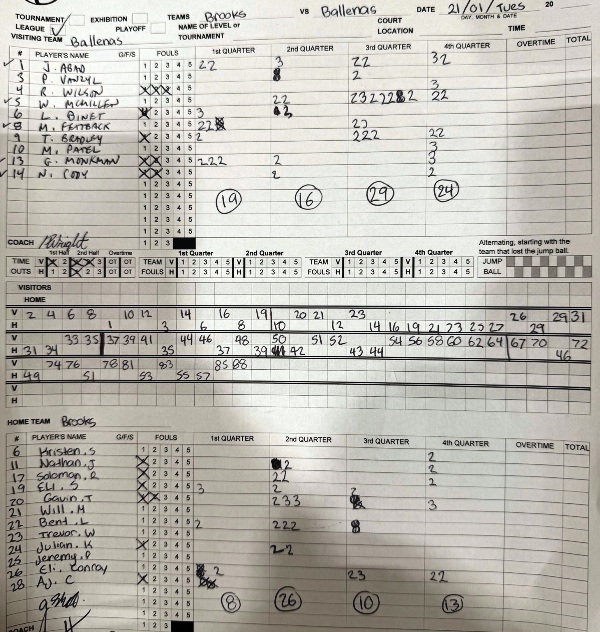 TOURNAMENT EXHIBITION TEAMS Brooks VS Ballenas DATE 21/01/Tues 20
LEAGUE PLAYOFF NAME OF LEVEL or TOURNAMENT COURT LOCATION DAY, MONTH & DATE TIME
VISITING TEAM Ballenas
# PLAYER'S NAME G/F/S FOULS 1st QUARTER 2nd QUARTER 3rd QUARTER 4th QUARTER OVERTIME TOTAL
1 J. ABAD 1 2 3 4 5 22 3 22 32
3 P. VANZYL 1 2 3 4 5 2
4 R. WILSON 4 5 3
5 W. MCMILLEN 1 2 3 4 5 22 22
6 L. BINET 2 3 4 5 3 3
8 M. FEATBACK 1 2 3 4 5 22 23
9 T. BRADLEY 2 3 4 5 2 222 22
10 M. PATEL 1 2 3 4 5 3
13 G. MONKMAN 3 4 5 222 2 3
14 N. CODY 3 4 5 2 2
1 2 3 4 5 19 16 29 24
1 2 3 4 5
1 2 3 4 5
1 2 3 4 5
COACH Wright 1 2 3
Alternating, starting with the team that lost the jump ball.
1st Half 2nd Half Overtime 1st Quarter 2nd Quarter 3rd Quarter 4th Quarter
TIME V OT OT TEAM V 1 2 3 4 5 V 1 2 3 4 5 TEAM V 1 2 3 4 5 V 1 2 3 4 5 JUMP
OUTS H OT OT FOULS H 1 2 3 4 5 H 1 2 3 4 5 FOULS H 1 2 3 4 5 H 1 2 3 4 5 BALL
VISITORS
HOME
V 2 4 6 8 10 12 14 16 19 20 21 23 26 29 31
H 1 3 6 8 10 12 14 16 19 21 23 25 27 29
V 33 35 37 39 41 44 46 48 50 51 52 54 56 58 60 62 64 67 70 72
H 31 34 35 37 39 42 43 44 46
V 74 76 78 81 83 85 88
H 49 51 53 55 57
V
H
HOME TEAM Brooks
# PLAYER'S NAME G/F/S FOULS 1st QUARTER 2nd QUARTER 3rd QUARTER 4th QUARTER OVERTIME TOTAL
6 Kristen. S 1 2 3 4 5 2
11 Nathan. J 2 3 4 5 2 2
17 Solomon. R 2 3 4 5 22 2
19 Eli. S 2 3 4 5 3 2 2
20 Gavin. T 3 4 5 233 3
21 Will. M 1 2 3 4 5
22 Bent. L 1 2 3 4 5 2 222
23 Trevor. W 1 2 3 4 5
24 Julian. K 2 3 4 5 22
25 Jeremy. P 1 2 3 4 5
26 Eli. Conroy 1 2 3 4 5 2
28 AJ. C 2 3 4 5 23 22
1 2 3 4 5
1 2 3 4 5 8 26 10 13
1 2 3 4 5
COACH 1 2 3